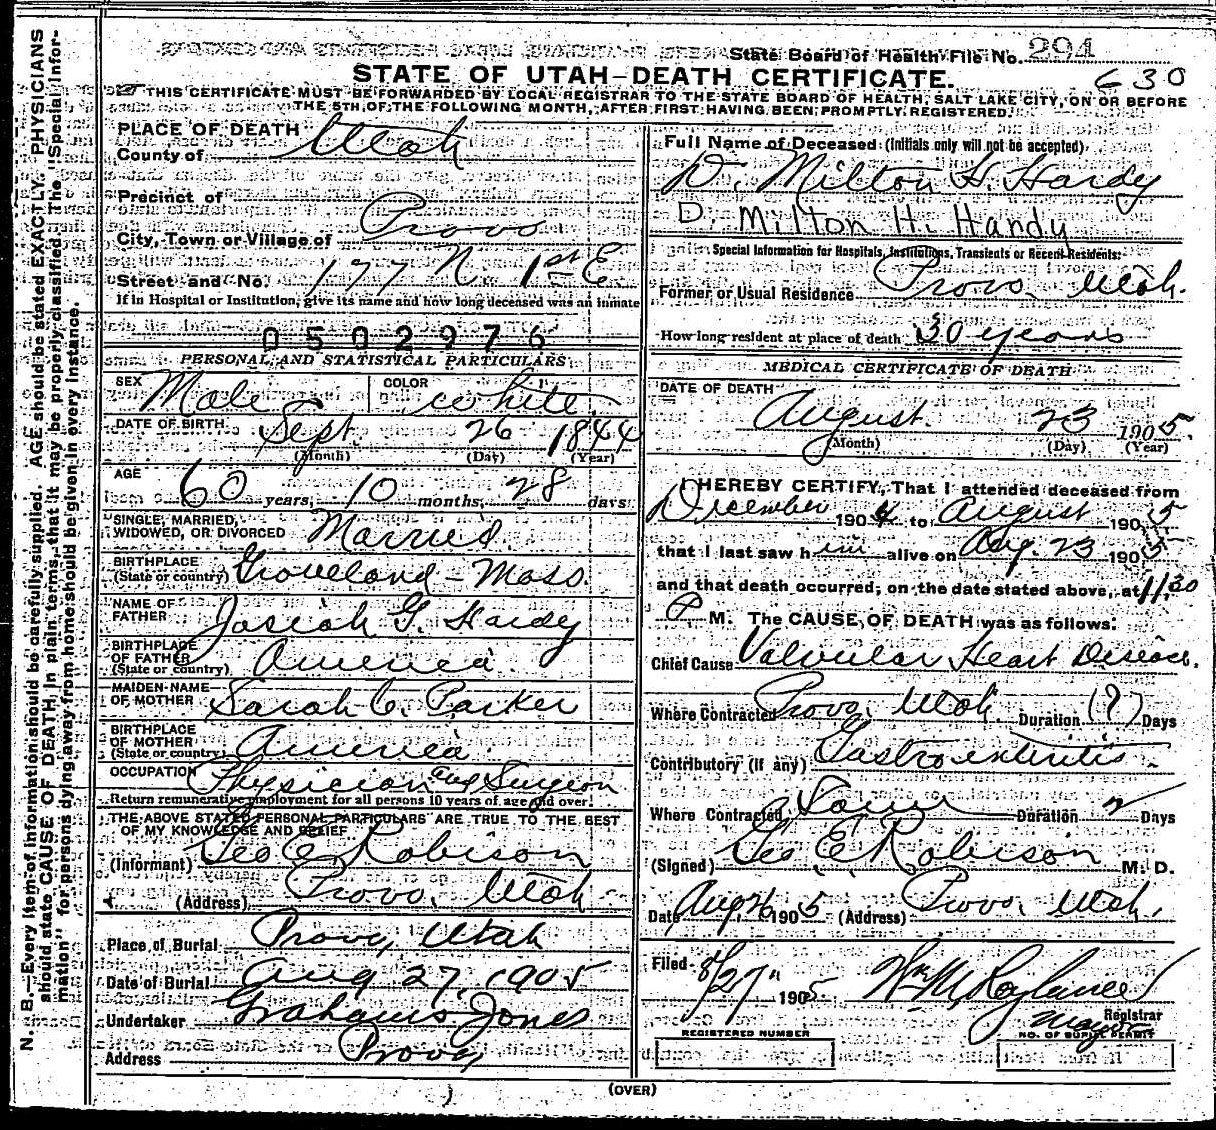 State Board of Health File No. 294
STATE OF UTAH—DEATH CERTIFICATE.
630
THIS CERTIFICATE MUST BE FORWARDED BY LOCAL REGISTRAR TO THE STATE BOARD OF HEALTH, SALT LAKE CITY, ON OR BEFORE
THE 5TH OF THE FOLLOWING MONTH, AFTER FIRST HAVING BEEN PROMPTLY REGISTERED.
N. B.—Every item of information should be carefully supplied. AGE should be stated EXACTLY. PHYSICIANS
should state CAUSE OF DEATH in plain terms, that it may be properly classified. The "Special Infor-
mation" for persons dying away from home should be given in every instance.
PLACE OF DEATH
County of Utah
Precinct of
City, Town or Village of Provo
Street and No. 177 N. 1st E
If in Hospital or Institution, give its name and how long deceased was an inmate
0502976
PERSONAL AND STATISTICAL PARTICULARS
SEX Male COLOR White
DATE OF BIRTH Sept. 26 1844
(Month) (Day) (Year)
AGE 60 years, 10 months, 28 days
SINGLE, MARRIED,
WIDOWED, OR DIVORCED Married.
BIRTHPLACE
(State or country) Groveland - Mass.
NAME OF
FATHER Josiah G. Hardy
BIRTHPLACE
OF FATHER
(State or country) America.
MAIDEN NAME
OF MOTHER Sarah C. Parker
BIRTHPLACE
OF MOTHER
(State or country) America.
OCCUPATION Physician and Surgeon
Return remunerative employment for all persons 10 years of age and over.
THE ABOVE STATED PERSONAL PARTICULARS ARE TRUE TO THE BEST
OF MY KNOWLEDGE AND BELIEF
(Informant) Geo E. Robison
(Address) Provo, Utah
Place of Burial Provo, Utah
Date of Burial Aug 27, 1905
Undertaker Grahams Jones
Address Provo,
Full Name of Deceased (Initials only will not be accepted)
D. Milton H. Hardy
D. Milton H. Handy
Special Information for Hospitals, Institutions, Transients or Recent Residents:
Former or Usual Residence Provo, Utah.
How long resident at place of death 30 years
MEDICAL CERTIFICATE OF DEATH
DATE OF DEATH
August. 23 1905.
(Month) (Day) (Year)
I HEREBY CERTIFY, That I attended deceased from
December 1904 to August 1905
that I last saw him alive on Aug. 23 1905
and that death occurred, on the date stated above, at 11:30
P M. The CAUSE OF DEATH was as follows:
Chief Cause Valvular Heart Disease.
Where Contracted Provo, Utah. Duration (?) Days
Contributory (if any) Gastro enteritis.
Where Contracted Duration Days
(Signed) Geo E. Robison M. D.
Date Aug 26 1905 (Address) Provo, Utah.
Filed 8/27" 1905. Wm M Roylance
Registrar
Mayor
REGISTERED NUMBER NO. OF BURIAL PERMIT
(OVER)